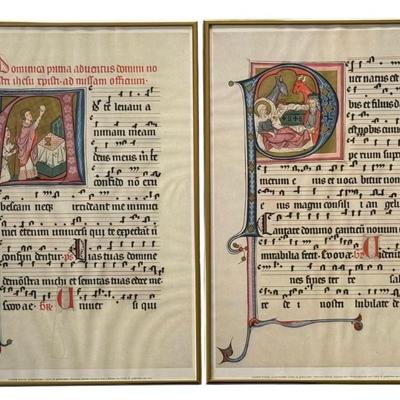 Dominica prima adventus domini no
stri ihesu xpisti ad missam officium.
A d te levavi a
nimam meam
deus meus in te
confido non eru
bescam neq; irrideant me inimici
mei etenim universi qui te expectant n
confundentur. ps Vias tuas domine
demonstra michi et semitas tuas edoce me
evovae. Gr. Univer si qui
P uer natus est
bis et filius da
est nobis cuius
perium super
merum e ius et vocabitur nomen
e ius magni consilii angeli
Cantate domino canticum novum
mirabilia fecit. Evovae. Gr. Viderunt
nes fines terre sal
re de i nostri iubilate de